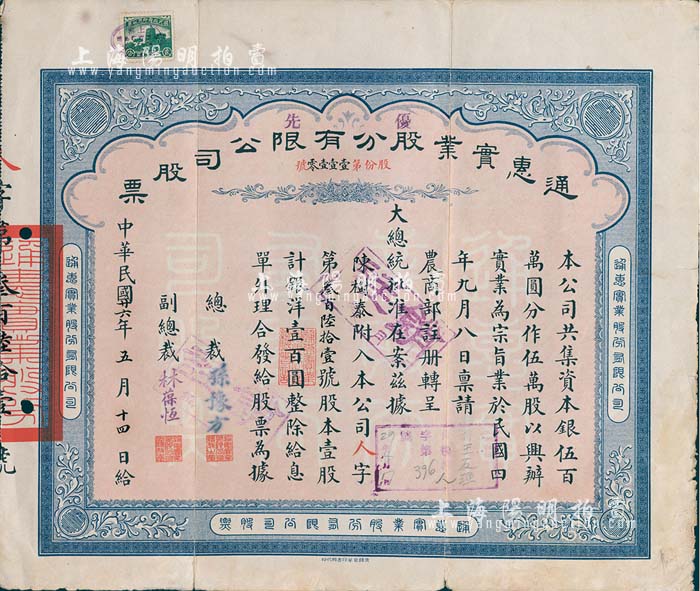 上海陽明拍賣
www.yangmingauction.com
優先
通惠實業股分有限公司股票
股份第壹壹壹零號
本公司共集資本銀伍百
萬圓分作伍萬股以興辦
實業為宗旨業於民國四
年九月八日稟請
農商部註册轉呈
大總統批准在案茲據
陳樹泰附入本公司人字
第叁百陸拾壹號股本壹股
計銀洋壹百圓整除給息
單外理合發給股票為據
總裁 孫豫方
副總裁 林葆恒
中華民國六年五月十四日給
人字第叁百陸拾壹號
396
通惠實業股份有限公司
通惠實業股份有限公司
通惠實業股份有限公司股票
上海陽明拍賣
www.yangmingauction.com